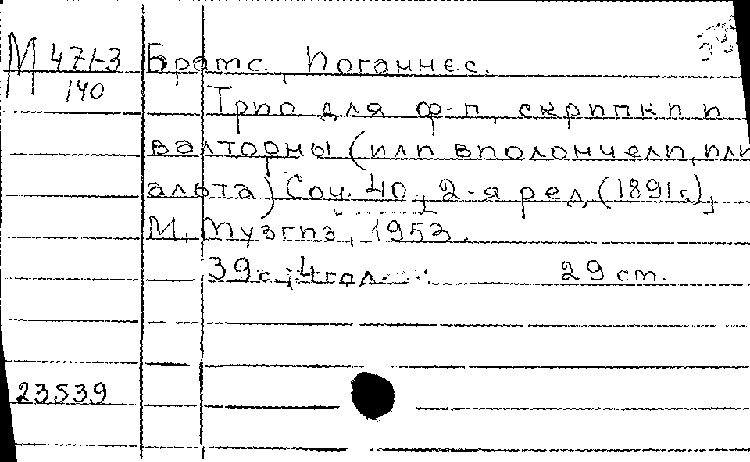 М 471-3 Брамс, Иоганнес.
140
Трио для ф-п, скрипки и
валторны (или виолончели, или
альта) Соч. 40, 2-я ред. (1891г.),
М, Музгиз, 1953.
39 с., 4 гол. 29 cm.
23539